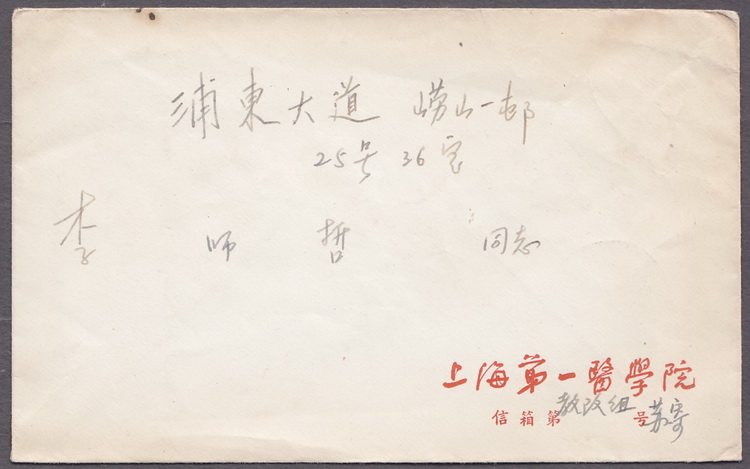 浦東大道 崂山一邨
25号 36室
李 师 哲 同志
上海第一醫學院
信箱第教改组号苏寄